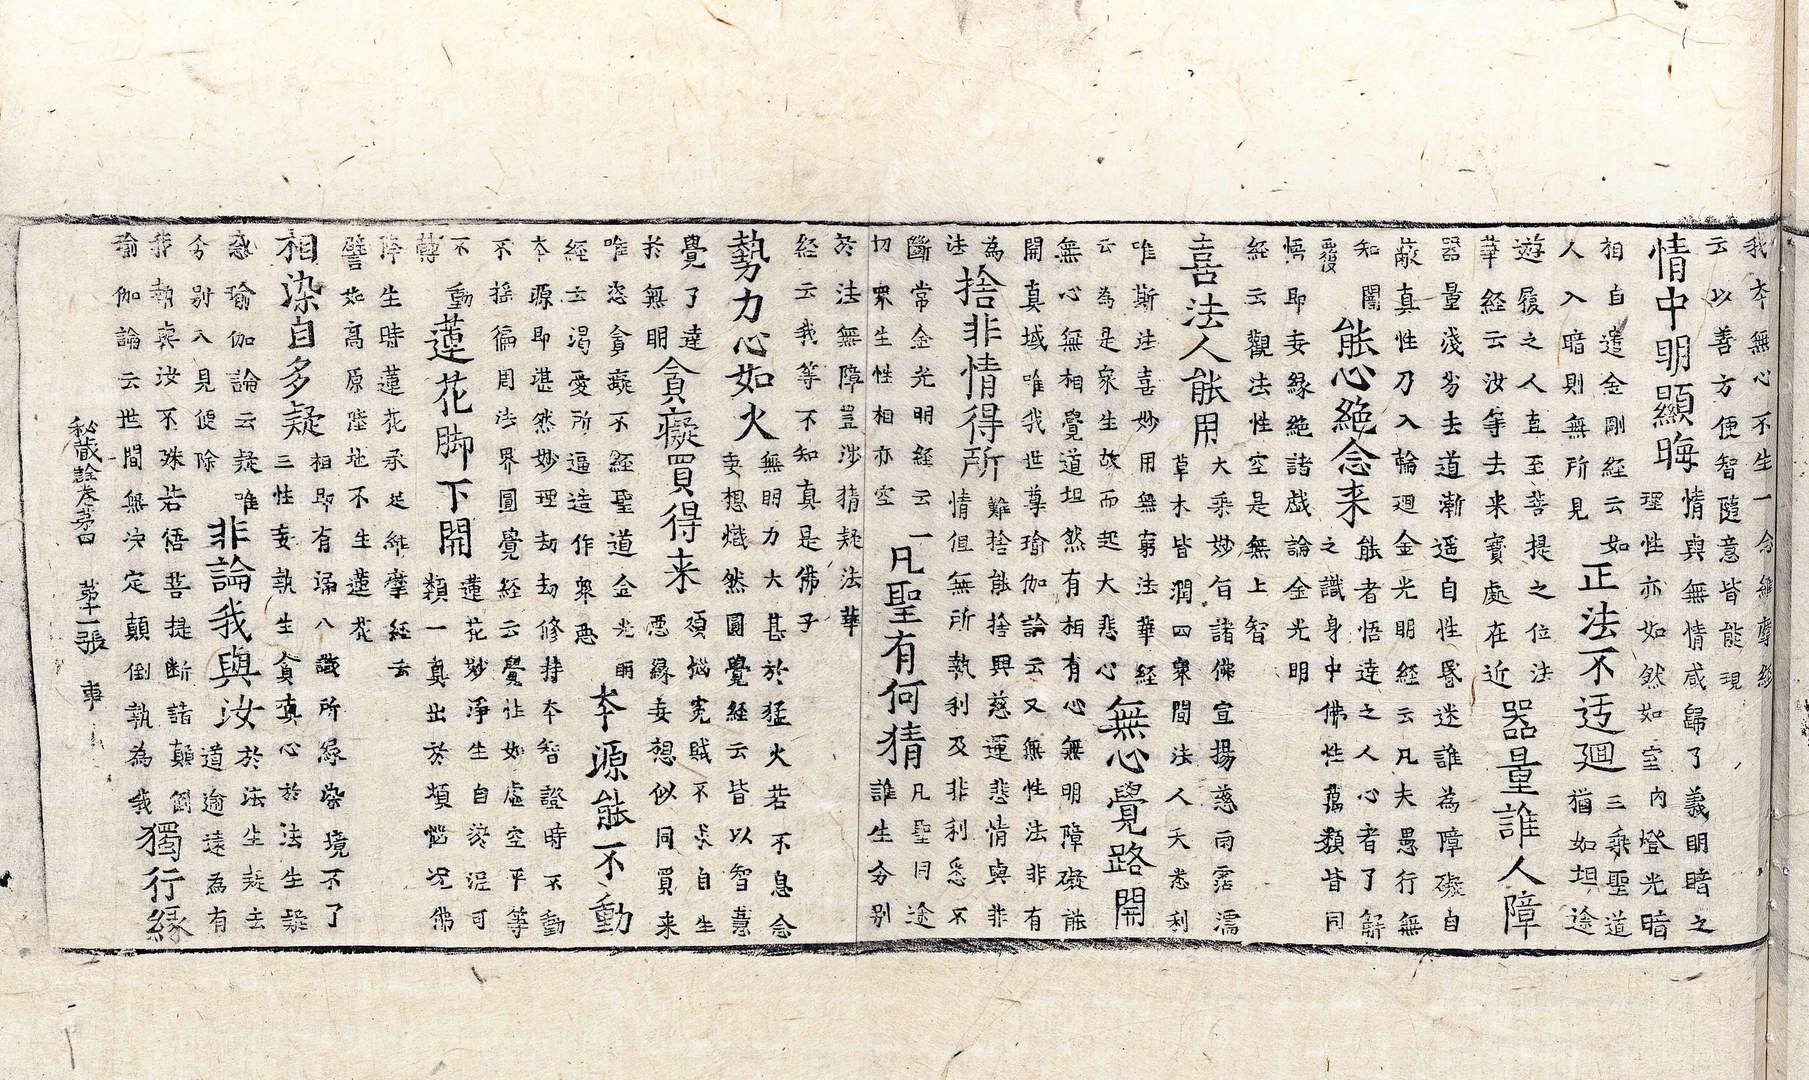 我夲無心不生一念維摩經
云以善方便智隨意皆能現
情中明顯晦
情與無情咸歸了義明暗之
理性亦如然如室内燈光暗
相自遣金剛經云如
人入暗則無所見
正法不迂廻
三乘聖道
猶如坦途
遊履之人直至菩提之位法
華經云汝等去来寶處在近
器量誰人障
器量淺劣去道漸遥自性昏迷誰為障礙自
蔽真性刀入輪廻金光明經云凡夫愚行無
知闇
覆
能心絶念来
能者悟達之人心者了解
之識身中佛性萬類皆同
悟即妄緣絶諸戲論金光明
經云觀法性空是無上智
喜法人能用
大乘妙旨諸佛宣揚慈雨霑濡
草木皆潤四衆間法人天悉利
唯斯法喜妙用無窮法華經
云為是衆生故而起大悲心
無心覺路開
無心無相覺道坦然有相有心無明障礙能
開真域唯我世尊瑜伽論云又無性法非有
為
法
捨非情得所
難捨能捨興慈運悲情與非
情但無所執利及非利悉不
斷常金光明經云一
切衆生性相亦空
凡聖有何猜
凡聖同途
誰生分別
於法無障豈涉猜疑法華
經云我等不知真是佛子
勢力心如火
無明力大甚於猛火若不息念
妄想熾然圓覺經云皆以智慧
覺了達
於無明
貪癡買得来
煩惱寃賊不求自生
惡緣妄想似同買来
唯恣貪癡不經聖道金光明
經云渇愛所逼造作衆惡
夲源能不動
夲源即湛然妙理劫劫修持夲智證時不動
不揺徧周法界圓覺經云覺性如虛空平等
不動
轉
蓮花脚下開
蓮花妙淨生自淤泥可
類一真出於煩惱况佛
降生時蓮花承足維摩經云
譬如高原陸地不生蓮花
相染自多疑
相即有漏八識所緣染境不了
三性妄執生貪真心於法生疑
惑瑜伽論云疑唯
分別入見便除
非論我與汝
於法生疑去
道逾遠為有
我執與汝不殊若悟菩提断諸顛倒
瑜伽論云世間無决定顛倒執為我
獨行緣
秘蔵詮卷第四 第十一張 事